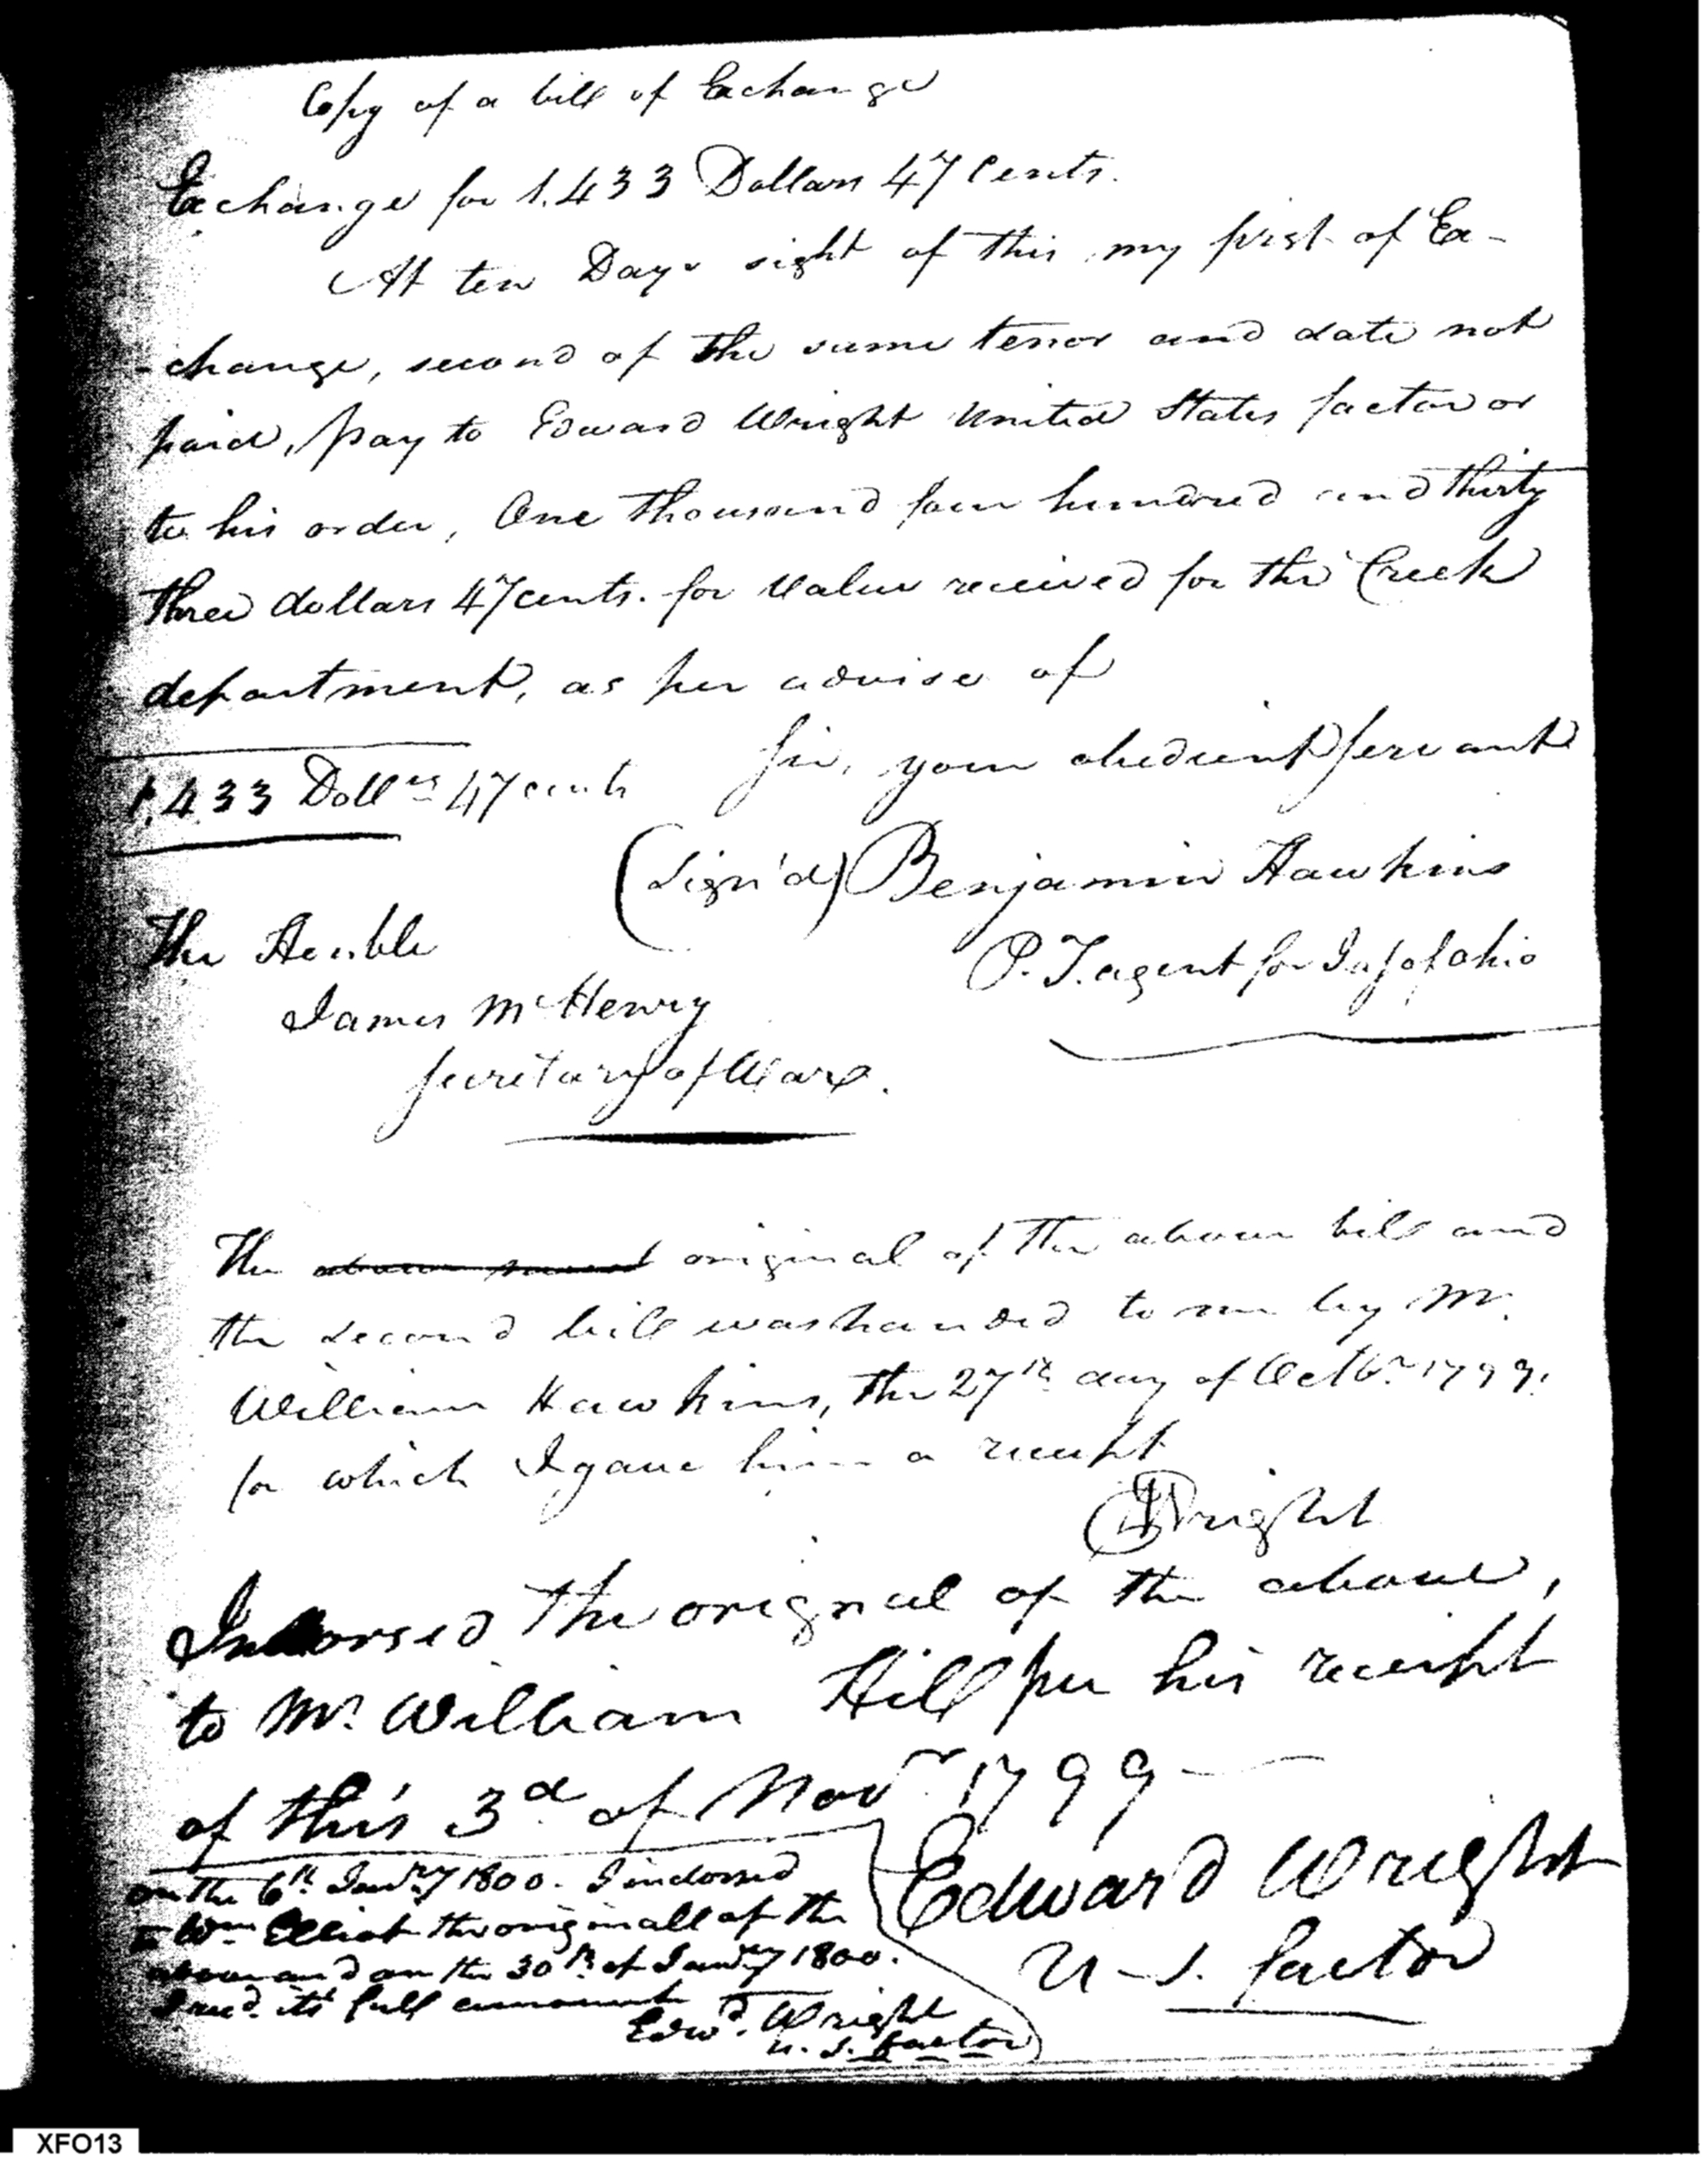 Copy of a bill of Exchange
Exchange for 1.433 Dollars 47 Cents.
At ten Days sight of this my first of Ex-
-change, second of the same tenor and date not
paid, pay to Edward Wright United States factor or
to his order, One thousand four hundred and thirty
three dollars 47 cents. for value received for the Creek
department, as per advise of
Sir, your obedient servant
1,433 Dollrs 47 cents
(Sign'd) Benjamin Hawkins
P. T. agent for I. a. s. of ohio
The Honble
James McHenry
Secretary of War.
The original of the above bill and
the second bill was handed to me by Mr.
William Hawkins, the 27th day of Octbr 1799.
for which I gave him a receipt
EWright
Indorsed the original of the above,
to Mr. William Hill per his receipt
of this 3d. of Novr 1799—
Edward Wright
U-S. factor
on the 6th Janry 1800. I indorsed
to Wm Elliot the originall of the
above and on the 30th of Janry 1800.
I recd. its full amount
Edwd. Wright
U. S. Factor
XFO13